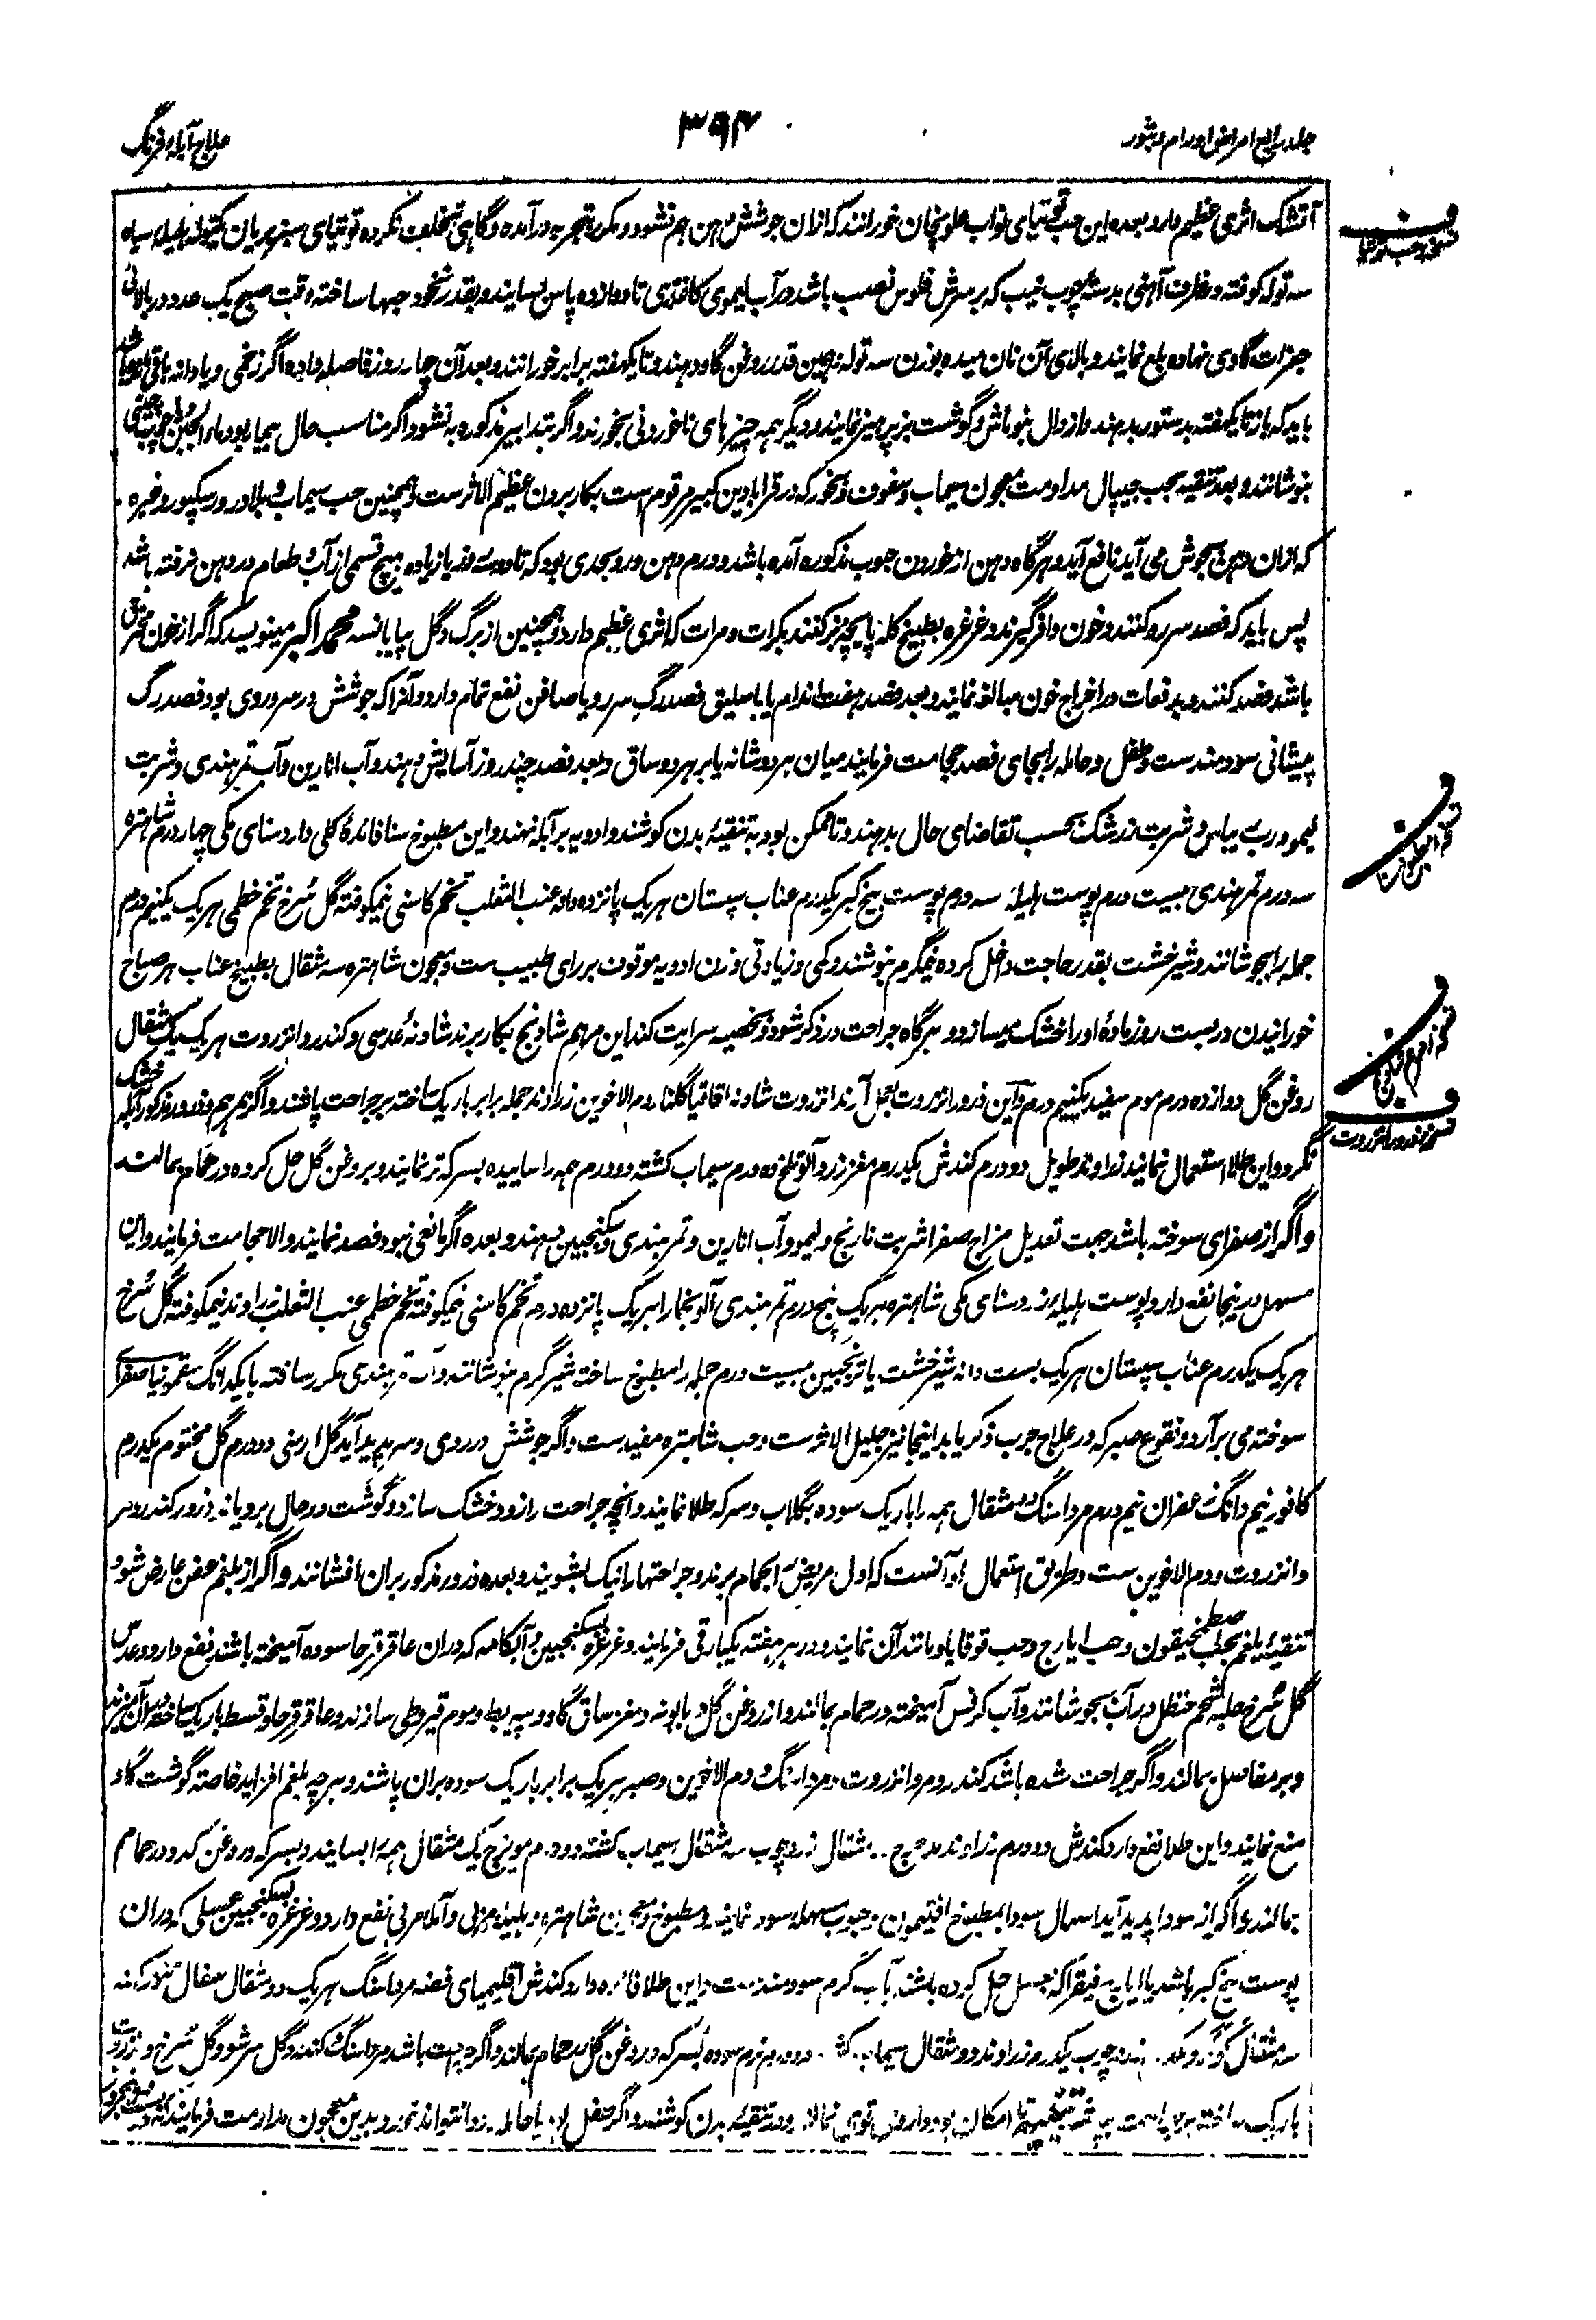 جلد رابع امراض اورام و بثور
۳۹۴
علاج آبلهٔ فرنگ
آتشک اثری عظیم دارد بعده این حب توتیای نواب علویخان خورانند که ازان جوشش دهن هم نشود و مکرر بتجربه درآمده و گاهی تخلف نکرده توتیای سبز بریان یکتوله هلیله سیاه
سه توله کوفته در ظرف آهنی بدستهٔ چوب نیب که بر سرش فلوس نصب باشد در آب لیموی کاغذی تا دوازده پاس بسایند و بقدر نخود حبها ساخته وقت صبح یک عدد در بالائی
جغرات گاوی نهاده بلع نمایند و بالای آن نان میده بوزن سه توله بهمین قدر روغن گاو دهند و تا یکهفته برابر خورانند و بعد آن چار روز فاصله داده اگر زخمی و یا دانه باقی
باید که باز تا یکهفته بدستور بدهند و از دال نبو ماش و گوشت بز پرهیز نمایند و دیگر همه چیزهای ناخوردنی بخورند و اگر بتدابیر مذکوره به نشود اگر مناسب حال بیمار بود ماء الجبن
بنوشانند و بعد تنقیه بحب جیپال مداومت معجون سیماب و سفوف و بخور که در قرابادین کبیر مرقوم است بکار بردن عظیم الاثرست و همچنین حب سیماب و بلادر و رسکپور و غیره
که ازان دهن بجوش می آید نافع آید و هرگاه دهن از خوردن حبوب مذکوره آمده باشد و ورم دهن و درد بحدی بود که تا دو سه روز یا زیاده هیچ قسمی از آب و طعام در دهن نرفته باشد
پس باید که فصد سر رو کنند و خون وافر گیرند و غرغره بطبیخ کله پایچه بز کنند بکرات و مرات که اثری عظیم دارد و همچنین از برگ و گل پیا بانسه محمد اکبر مینویسد که اگر از خون محترق
باشد فصد کنند و بدفعات در اخراج خون مبالغه نمایند و بعد فصد هفت اندام یا باسلیق فصد رگ سر رو یا صافن نفع تمام دارد و آنرا که جوشش در سر و روی بود فصد رگ
پیشانی سودمندست و طفل و حامله را بجای فصد حجامت فرمایند میان هر دو شانه یا بر هر دو ساق و بعد فصد چند روز آسایش دهند و آب انارین و آب تمرهندی و شربت
لیمو و رب ریباس و شربت زرشک بحسب تقاضای حال بدهند و تا ممکن بود به تنقیهٔ بدن کوشند و ادویه بر آبله ننهند و این مطبوخ سنا فائدهٔ کلی دارد سنای مکی چهار درم شاهتره
سه درم تمرهندی بیست درم پوست هلیله سه درم پوست بیخ کبر یکدرم عناب سپستان هر یک پانزده دانه عنب الثعلب تخم کاسنی نیمکوفته گل سرخ تخم خطمی هر یک یکنیم درم
جمله را بجوشانند و شیرخشت بقدر حاجت داخل کرده نیمگرم بنوشند و کمی و زیادتی وزن ادویه موقوف بر رای طبیب ست و معجون شاهتره سه مثقال بطبیخ عناب هر صباح
خورانیدن در بیست روز مادهٔ او را خشک میسازد و هرگاه جراحت در ذکر شود و بخصیه سرایت کند این مرهم شادنج بکار برند شادنهٔ عدسی و کندر و انزروت هر یک یک مثقال
روغن گل دوازده درم موم سفید یکنیم درم و این ذرور انزروت بعمل آرند انزروت شادنه اقاقیا گلنار دم الاخوین زراوند جمله برابر باریک ساخته بر جراحت پاشند و اگر بمرهم و ذرور مذکور آبله خشک
نگردد این طلا استعمال نمایند زراوند طویل دو درم کندش یکدرم مغز زردآلو تلخ ده درم سیماب کشته دو درم همه را ساییده بسرکه تر نمایند و بروغن گل حل کرده در حمام بمالند
و اگر از صفرای سوخته باشد جهت تعدیل مزاج صفرا شربت نارنج و لیمو و آب انارین و تمر هندی و سکنجبین دهند و بعده اگر مانعی نبود فصد نمایند و الا حجامت فرمایند و این
مسهل درینجا نفع دارد پوست هلیله زرد سنای مکی شاهتره هر یک پنج درم تمر هندی آلو بخارا هر یک پانزده درم تخم کاسنی نیمکوفته تخم خطمی عنب الثعلب راوند نیمکوفته گل سرخ
هر یک یکدرم عناب سپستان هر یک بست دانه شیرخشت یا ترنجبین بیست درم جمله را مطبوخ ساخته شیرگرم بنوشانند و آب تمر هندی مکرر ساخته با یکدانگ سقمونیا صفرای
سوخته می برآرد و نقوع صبر که در علاج جرب ذکر یابد اینجا نیز جلیل الاثرست و حب شاهتره مفیدست و اگر جوشش در روی و سر پدید آید گل ارمنی دو درم گل مختوم یکدرم
کافور نیم دانگ زعفران نیم درم مرداسنگ دو مثقال همه را باریک سوده بگلاب و سرکه طلا نمایند و آنچه جراحت را زود خشک سازد و گوشت در حال برویاند ذرور کندر و مر
و انزروت و دم الاخوین ست و طریق استعمال او آنست که اول مریض را بحمام برند و جراحتها را نیک بشویند و بعده ذرور مذکور بران افشانند و اگر از بلغم عفن عارض شود
تنقیهٔ بلغم بحب اصطمخیقون و حب ایارج و حب قوقایا و مانند آن نمایند و در هر هفته یکبار قی فرمایند و غرغره بسکنجبین و آبکامه که دران عاقرقرحا سوده آمیخته باشند نفع دارد و عدس
گل سرخ حلبه شحم حنظل در آب بجوشانند و آب کرفس آمیخته در حمام بمالند و از روغن گل و بابونه و مغز ساق گاو و پیه بط و موم قیروطی سازند و عاقرقرحا و قسط باریک ساخته دران آمیزند
و بر مفاصل بمالند و اگر جراحت شده باشد کندر و مر و انزروت و مرداسنگ و دم الاخوین و صبر هر یک برابر باریک سوده بران پاشند و هر چه بلغم افزاید خاصته گوشت گاو
منع نمایند و این طلا نفع دارد کندش دو درم زراوند مدحرج مثقال زردچوب سه مثقال سیماب کشته دو درم مویزج یک مثقال همه را بسایند و بسرکه و روغن کدو در حمام
بمالند و اگر از سودا پدید آید اسهال سودا بمطبوخ افتیمون و حبوب مسهله سودا نمایند و مطبوخ و معجون شاهتره و هلیله مربی و آمله مربی نفع دارد و غرغره بسکنجبین عسلی که دران
پوست بیخ کبر باشد یا ایارج فیقرا که بعسل حل کرده باشند بآب گرم سودمندست و این طلا فائده دارد کندش اقلیمیای فضه مرداسنگ هر یک دو مثقال سفال
سه مثقال زردچوب یکدرم زراوند دو مثقال سیماب کشته دو درم نرم سوده بسرکه و روغن گل در حمام بمالند و اگر جراحت باشد مرداسنگ کندر و گل سرشو و گل سرخ و انزروت
باریک ساخته بر جراحت امکان بود داروی قوی ننهند و در تنقیهٔ بدن کوشند و اگر طفل بود یا حامله دوا نتواند خورد بدین معجون مداومت فرمایند